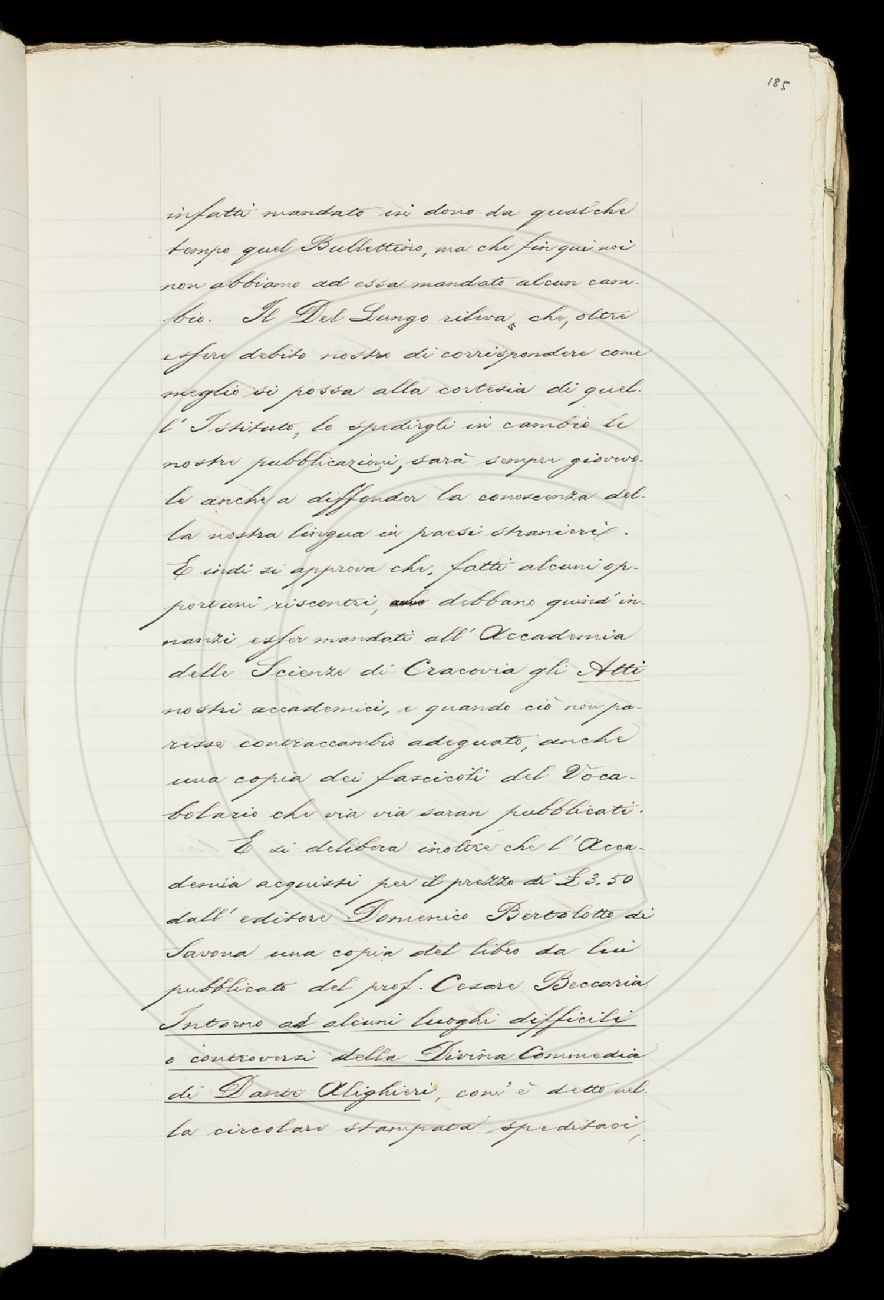 185
infatti mandato in dono da qualche
tempo quel Bullettino, ma che fin qui noi
non abbiamo ad essa mandato alcun cam-
bio. Il Del Lungo rileva, che, oltre
essere debito nostro di corrispondere come
meglio si possa alla cortesia di quel-
l'Istituto, lo spedirgli in cambio le
nostre pubblicazioni, sarà sempre giovevo-
le anche a diffonder la conoscenza del-
la nostra lingua in paesi stranieri.
E indi si approva che, fatti alcuni op-
portuni riscontri, debbano quind'in-
nanzi esser mandati all'Accademia
delle Scienze di Cracovia gli Atti
nostri accademici, e quando ciò non pa-
resse contraccambio adeguato, anche
una copia dei fascicoli del Voca-
bolario che via via saran pubblicati.
E si delibera inoltre che l'Acca-
demia acquisti per il prezzo di £ 3.50
dall'editore Domenico Bertolotto di
Savona una copia del libro da lui
pubblicato del prof. Cesare Beccaria
Intorno ad alcuni luoghi difficili
o controversi della Divina Commedia
di Dante Alighieri, com'è detto nel-
la circolare stampata speditaci,